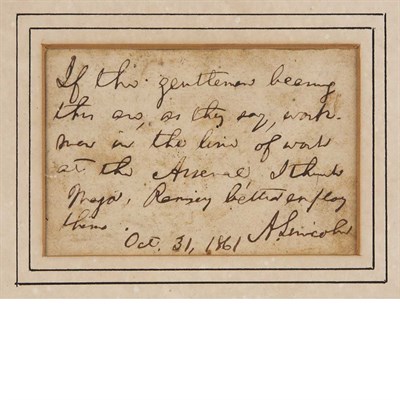 If the gentlemen bearing
this are, as they say, work-
men in the line of work
at the Arsenal, I think
Major, Ramsey better employ
them.
Oct. 31, 1861 A. Lincoln